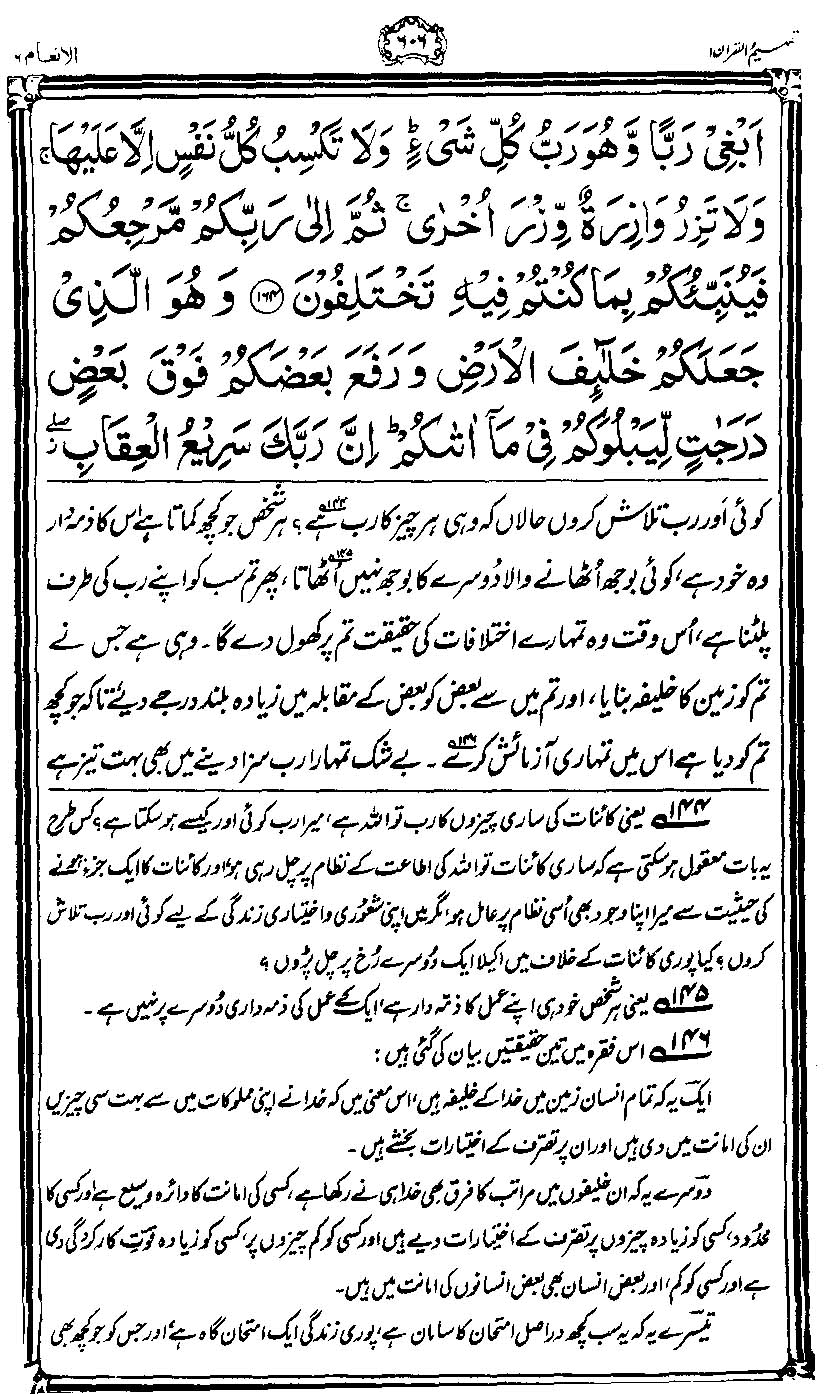 تفہیم القرآن ۱
۶۰۶
الانعام ۶
اَبْغِیْ رَبًّا وَّهُوَ رَبُّ كُلِّ شَیْءٍ ؕ وَلَا تَكْسِبُ كُلُّ نَفْسٍ اِلَّا عَلَیْهَا ۚ
وَلَا تَزِرُ وَازِرَةٌ وِّزْرَ اُخْرٰی ۚ ثُمَّ اِلٰی رَبِّكُمْ مَّرْجِعُكُمْ
فَیُنَبِّئُكُمْ بِمَا كُنْتُمْ فِیْهِ تَخْتَلِفُوْنَ ﴿۱۶۴﴾ وَ هُوَ الَّذِیْ
جَعَلَكُمْ خَلٰٓئِفَ الْاَرْضِ وَ رَفَعَ بَعْضَكُمْ فَوْقَ بَعْضٍ
دَرَجٰتٍ لِّیَبْلُوَكُمْ فِیْ مَاۤ اٰتٰىكُمْ ؕ اِنَّ رَبَّكَ سَرِیْعُ الْعِقَابِ ۖ
کوئی اَور رب تلاش کروں حالاں کہ وہی ہر چیز کا رب ہے۱۴۴؟ ہر شخص جو کچھ کماتا ہے اس کا ذمہ دار
وہ خود ہے، کوئی بوجھ اُٹھانے والا دُوسرے کا بوجھ نہیں اُٹھاتا۱۴۵، پھر تم سب کو اپنے رب کی طرف
پلٹنا ہے، اُس وقت وہ تمہارے اختلافات کی حقیقت تم پر کھول دے گا۔ وہی ہے جس نے
تم کو زمین کا خلیفہ بنایا، اور تم میں سے بعض کو بعض کے مقابلہ میں زیادہ بلند درجے دیئے تاکہ جو کچھ
تم کو دیا ہے اس میں تمہاری آزمائش کرے۱۴۶۔ بے شک تمہارا رب سزا دینے میں بھی بہت تیز ہے
۱۴۴ یعنی کائنات کی ساری چیزوں کا رب تو اللہ ہے، میرا رب کوئی اور کیسے ہو سکتا ہے؟ کس طرح
یہ بات معقول ہو سکتی ہے کہ ساری کائنات تو اللہ کی اطاعت کے نظام پر چل رہی ہو، اور کائنات کا ایک جزء ہونے
کی حیثیت سے میرا اپنا وجود بھی اُسی نظام پر عامل ہو، مگر میں اپنی شعوری و اختیاری زندگی کے لیے کوئی اور رب تلاش
کروں؟ کیا پوری کائنات کے خلاف میں اکیلا ایک دُوسرے رُخ پر چل پڑوں؟
۱۴۵ یعنی ہر شخص خود ہی اپنے عمل کا ذمہ دار ہے، ایک کے عمل کی ذمہ داری دُوسرے پر نہیں ہے۔
۱۴۶ اس فقرہ میں تین حقیقتیں بیان کی گئی ہیں:
ایک یہ کہ تمام انسان زمین میں خدا کے خلیفہ ہیں، اس معنی میں کہ خدا نے اپنی مملوکات میں سے بہت سی چیزیں
ان کی امانت میں دی ہیں اور ان پر تصرّف کے اختیارات بخشے ہیں۔
دوسرے یہ کہ ان خلیفوں میں مراتب کا فرق بھی خدا ہی نے رکھا ہے، کسی کی امانت کا دائرہ وسیع ہے اور کسی کا
محدود، کسی کو زیادہ چیزوں پر تصرّف کے اختیارات دیے ہیں اور کسی کو کم چیزوں پر، کسی کو زیادہ قوتِ کارکردگی دی
ہے اور کسی کو کم، اور بعض انسان بھی بعض انسانوں کی امانت میں ہیں۔
تیسرے یہ کہ یہ سب کچھ دراصل امتحان کا سامان ہے، پوری زندگی ایک امتحان گاہ ہے، اور جس کو جو کچھ بھی